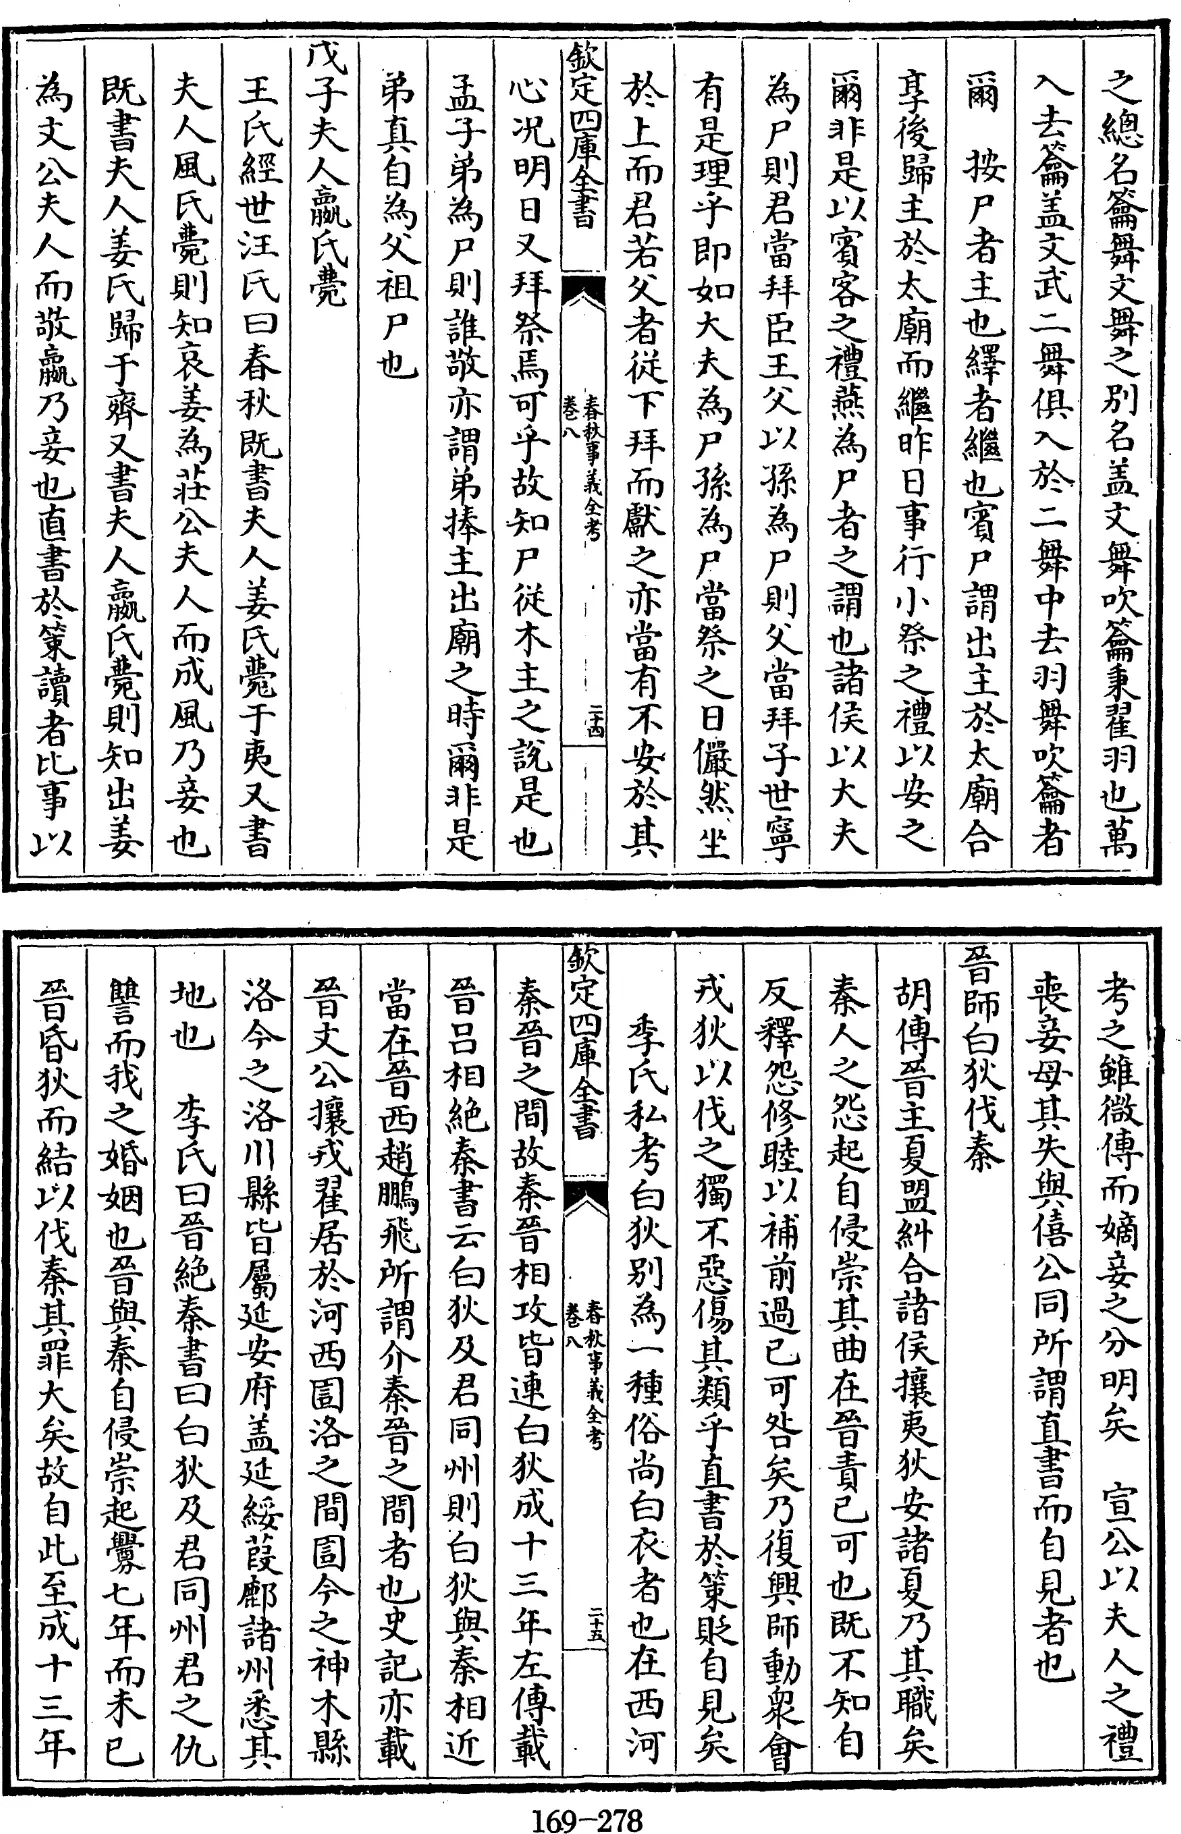 之總名籥舞文舞之别名盖文舞吹籥秉翟羽也萬
入去籥盖文武二舞俱入於二舞中去羽舞吹籥者
爾　按尸者主也繹者繼也賓尸謂出主於太廟合
享後歸主於太廟而繼昨日事行小祭之禮以安之
爾非是以賓客之禮燕為尸者之謂也諸侯以大夫
為尸則君當拜臣王父以孫為尸則父當拜子世寧
有是理乎即如大夫為尸孫為尸當祭之日儼然坐
於上而君若父者從下拜而獻之亦當有不安於其
欽定四庫全書
春秋事義全考
卷八
二十四
心况明日又拜祭焉可乎故知尸從木主之說是也
孟子弟為尸則誰敬亦謂弟捧主出廟之時爾非是
弟真自為父祖尸也
戊子夫人嬴氏薨
王氏經世汪氏曰春秋既書夫人姜氏薨于夷又書
夫人風氏薨則知哀姜為莊公夫人而成風乃妾也
既書夫人姜氏歸于齊又書夫人嬴氏薨則知出姜
為文公夫人而敬嬴乃妾也直書於策讀者比事以
考之雖微傳而嫡妾之分明矣　宣公以夫人之禮
喪妾母其失與僖公同所謂直書而自見者也
晉師白狄伐秦
胡傳晉主夏盟糾合諸侯攘夷狄安諸夏乃其職矣
秦人之怨起自侵崇其曲在晉責已可也既不知自
反釋怨修睦以補前過已可咎矣乃復興師動衆會
戎狄以伐之獨不惡傷其類乎直書於策貶自見矣
季氏私考白狄别為一種俗尚白衣者也在西河
欽定四庫全書
春秋事義全考
卷八
二十五
秦晉之間故秦晉相攻皆連白狄成十三年左傳載
晉呂相絶秦書云白狄及君同州則白狄與秦相近
當在晉西趙鵬飛所謂介秦晉之間者也史記亦載
晉文公攘戎翟居於河西圁洛之間圁今之神木縣
洛今之洛川縣皆屬延安府盖延綏葭鄜諸州悉其
地也　李氏曰晉絶秦書曰白狄及君同州君之仇
讐而我之婚姻也晉與秦自侵崇起釁七年而未已
晉昏狄而結以伐秦其罪大矣故自此至成十三年
169-278